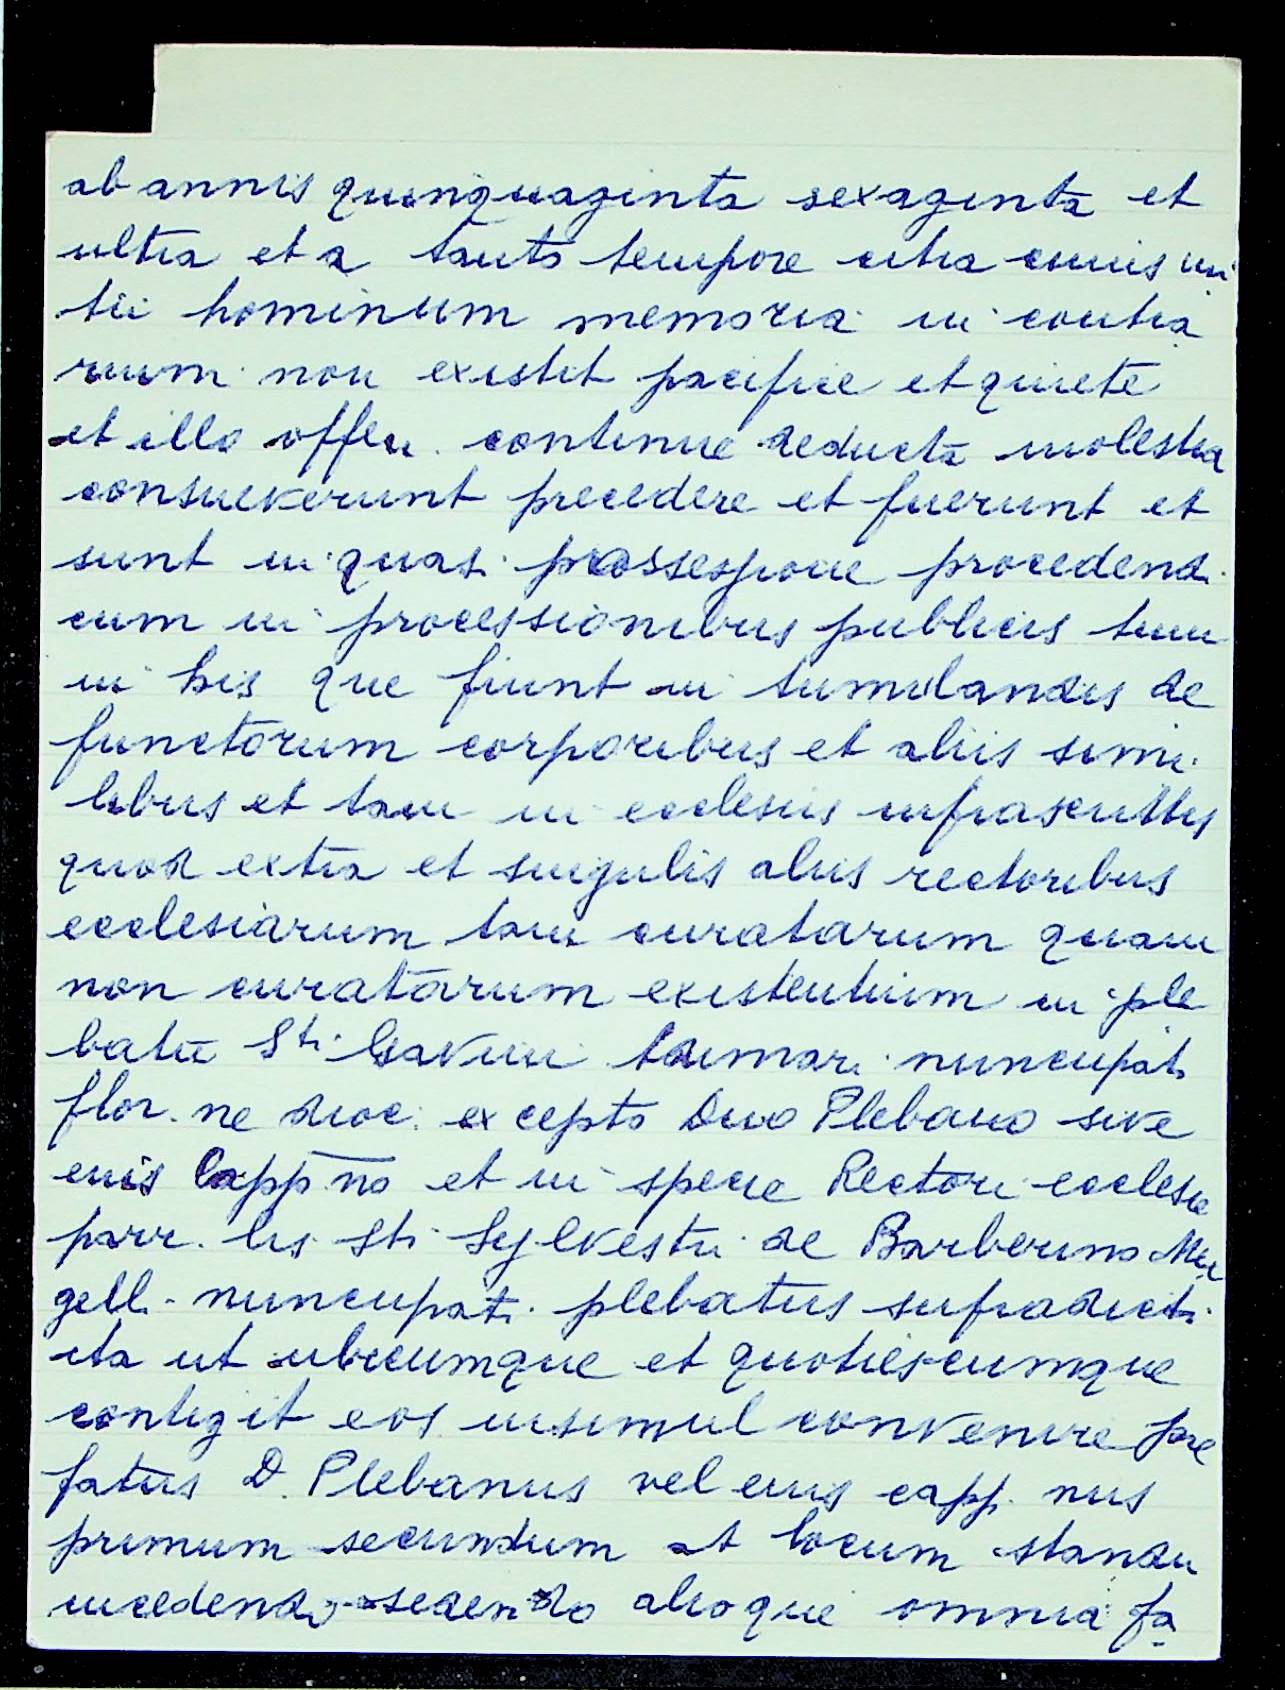 ab annis quinquaginta sexaginta et
ultra et a tanto tempore citra cuius ini
tii hominum memoria in contra
rium non existit pacifice et quiete
et illo offen. continue deducta molestia
consueverunt precedere et fuerunt et
sunt in quasi possessione procedendi
cum in processionibus publicis tum
in his que fiunt in tumulandis de
functorum corporibus et aliis simi
libus et tam in ecclesiis infrascrittis
quod extra et singulis aliis rectoribus
ecclesiarum tam curatarum quam
non curatarum existentium in ple
batu Sti. Gavini nuncupat.
flor. ne dioc. excepto Dno Plebano sive
euis Capp.no et in specie Rectori ecclesie
parr. lis Sti Sylvestri de Barberino Mu
gelli nuncupat. plebatus supradicti
ita ut ubicumque et quotiescumque
contigit eos insimul convenire pre
fatus D. Plebanus vel eius capp. nus
primum secundum et locum standu
incedendo sedendo alioque omnia fa